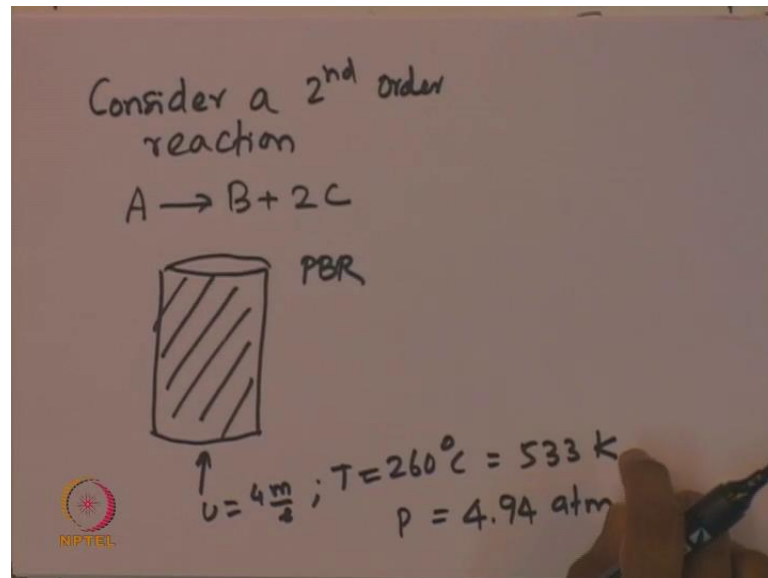 Consider a 2nd order
reaction
A → B + 2C
PBR
U = 4 m/s ; T = 260°C = 533 K
P = 4.94 atm
NPTEL